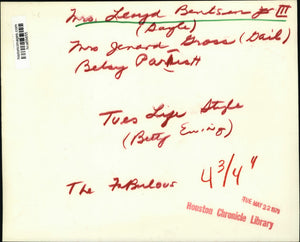 Mrs. Lloyd Bentsen III
(Gayle)
Mrs Jenard Gross (Gail)
Betsy Parish
Tues Life Style
(Betty Ewing)
The Fabulous
4 3/4"
TUE MAY 22 1979
Houston Chronicle Library